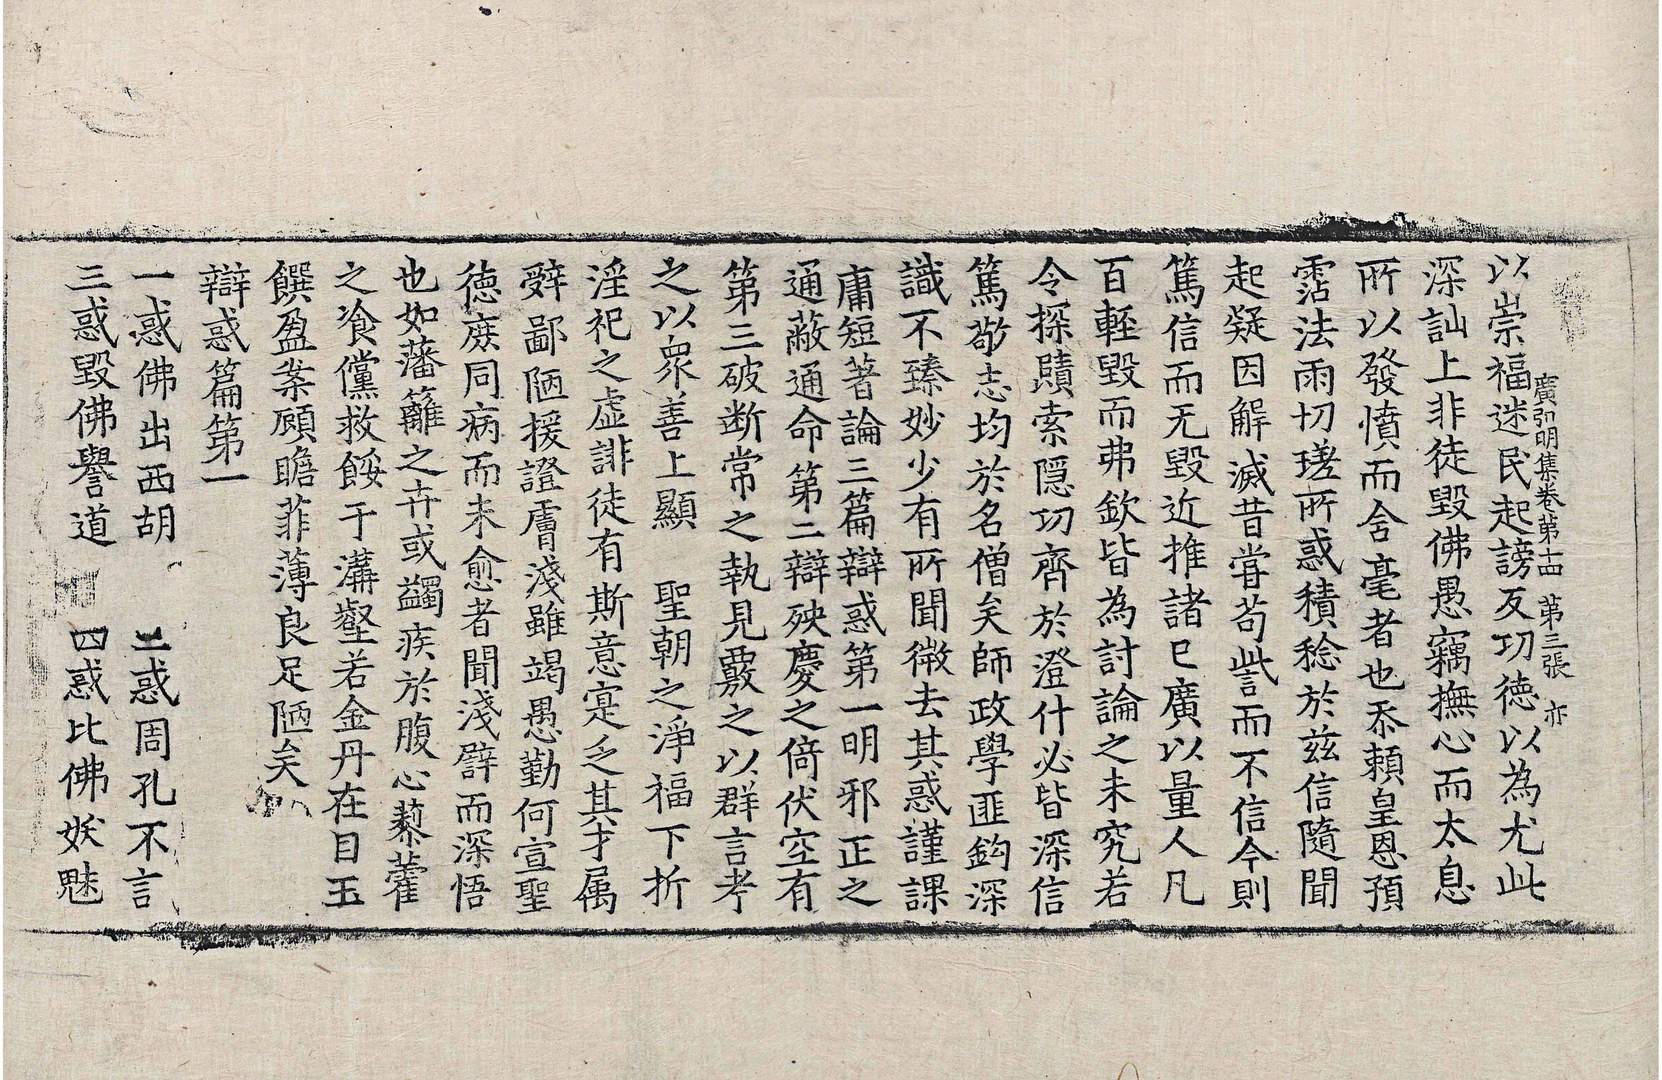 廣弘明集卷第十四　第三張　亦
以崇福迷民起謗反功德以為尤此
深訕上非徒毀佛愚竊撫心而太息
所以發憤而舍毫者也忝賴皇恩預
霑法雨切瑳所惑積稔於茲信隨聞
起疑因解滅昔嘗苟訾而不信今則
篤信而无毀近推諸己廣以量人凡
百輕毀而弗欽皆為討論之未究若
令探賾索隱功齊於澄什必皆深信
篤敬志均於名僧矣師政學匪鈎深
識不臻妙少有所聞微去其惑謹課
庸短著論三篇辯惑第一明邪正之
通蔽通命第二辯殃慶之倚伏空有
第三破斷常之執見覈之以群言考
之以衆善上顯　聖朝之淨福下折
淫祀之虛誹徒有斯意寔乏其才属
辤鄙陋援證膚淺雖竭愚勤何宣聖
德庶同病而未愈者聞淺譬而深悟
也如藩籬之卉或蠲疾於腹心藜藿
之飡儻救餒于溝壑若金丹在目玉
饌盈案顧瞻菲薄良足陋矣
辯惑篇第一
一惑佛出西胡　二惑周孔不言
三惑毀佛譽道　四惑比佛妖魅